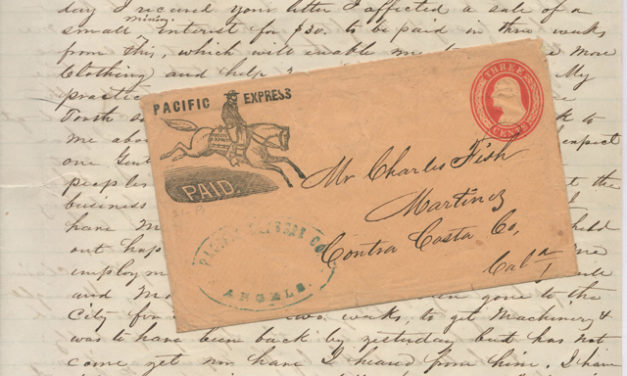 day I received your letter I affected a sale of a
mining
small interest for $30. to be paid in three weeks
from this, which will enable me more
Clothing and help My
practic
to
me abo expect
one
peoples the
business
have M held
out hop
employm
and Mo gone to the
City for two weeks, to get Machinery &
was to have been back by yesterday but has not
come yet nor have I heard from him. I have
PACIFIC EXPRESS
PAID.
THREE
CENTS
Mr Charles Fish
Martinez
Contra Costa Co,
Cala
PACIFIC EXPRESS CO
ANGELS.